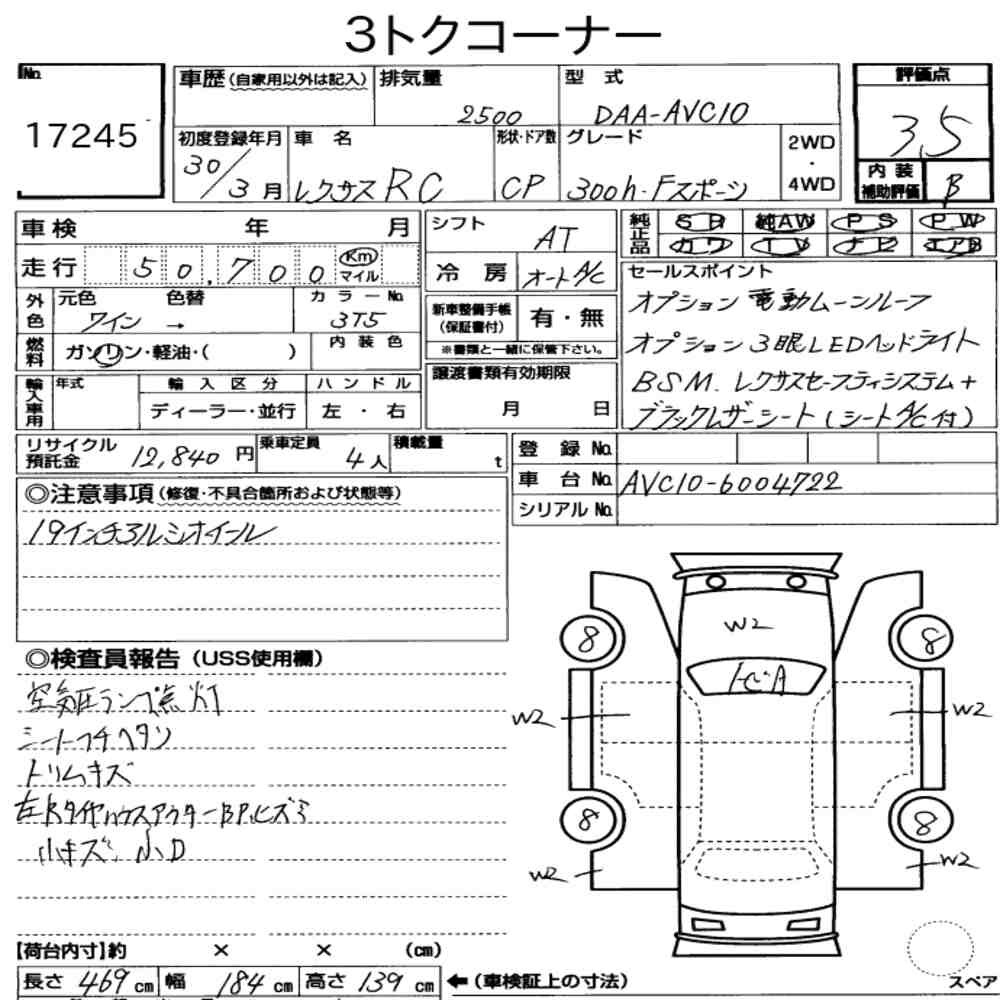 3トクコーナー
No.
17245
車歴 (自家用以外は記入)
排気量
2500
型 式
DAA-AVC10
評価点
3.5
初度登録年月
30/3月
車 名
レクサス RC
形状・ドア数
CP
グレード
300h・Fスポーツ
2WD
・
4WD
内 装
補助評価
B
車検 年 月
シフト
AT
純正品
SR 純AW PS PW
カワ TV ナビ エアB
走行 50,700 Km マイル
冷 房
オートA/C
セールスポイント
オプション 電動ムーンルーフ
オプション 3眼LEDヘッドライト
BSM. レクサスセーフティシステム+
ブラックレザーシート (シートA/C付)
外色
元色 色替
ワイン →
カラーNo.
3T5
新車整備手帳
(保証書付)
有・無
※書類と一緒に保管下さい。
燃料
ガソリン・軽油・( )
内 装 色
輸入車用
年式
輸 入 区 分
ディーラー・並行
ハ ン ド ル
左 ・ 右
譲渡書類有効期限
月 日
リサイクル
預託金
12,840 円
乗車定員
4人
積載量
t
登 録 No.
車 台 No.
AVC10-6004722
シリアル No.
◎注意事項 (修復・不具合箇所および状態等)
19インチアルミホイール
◎検査員報告 (USS使用欄)
空気圧ランプ点灯
シートフチヘタリ
トリムキズ
左Rタイヤハウスアウター BP.ヒズミ
小キズ. 小D
W2
8
8
W2
W2
8
8
W2
W2
【荷台内寸】約 × × (cm)
長さ 469 cm 幅 184 cm 高さ 139 cm
←(車検証上の寸法)
スペア